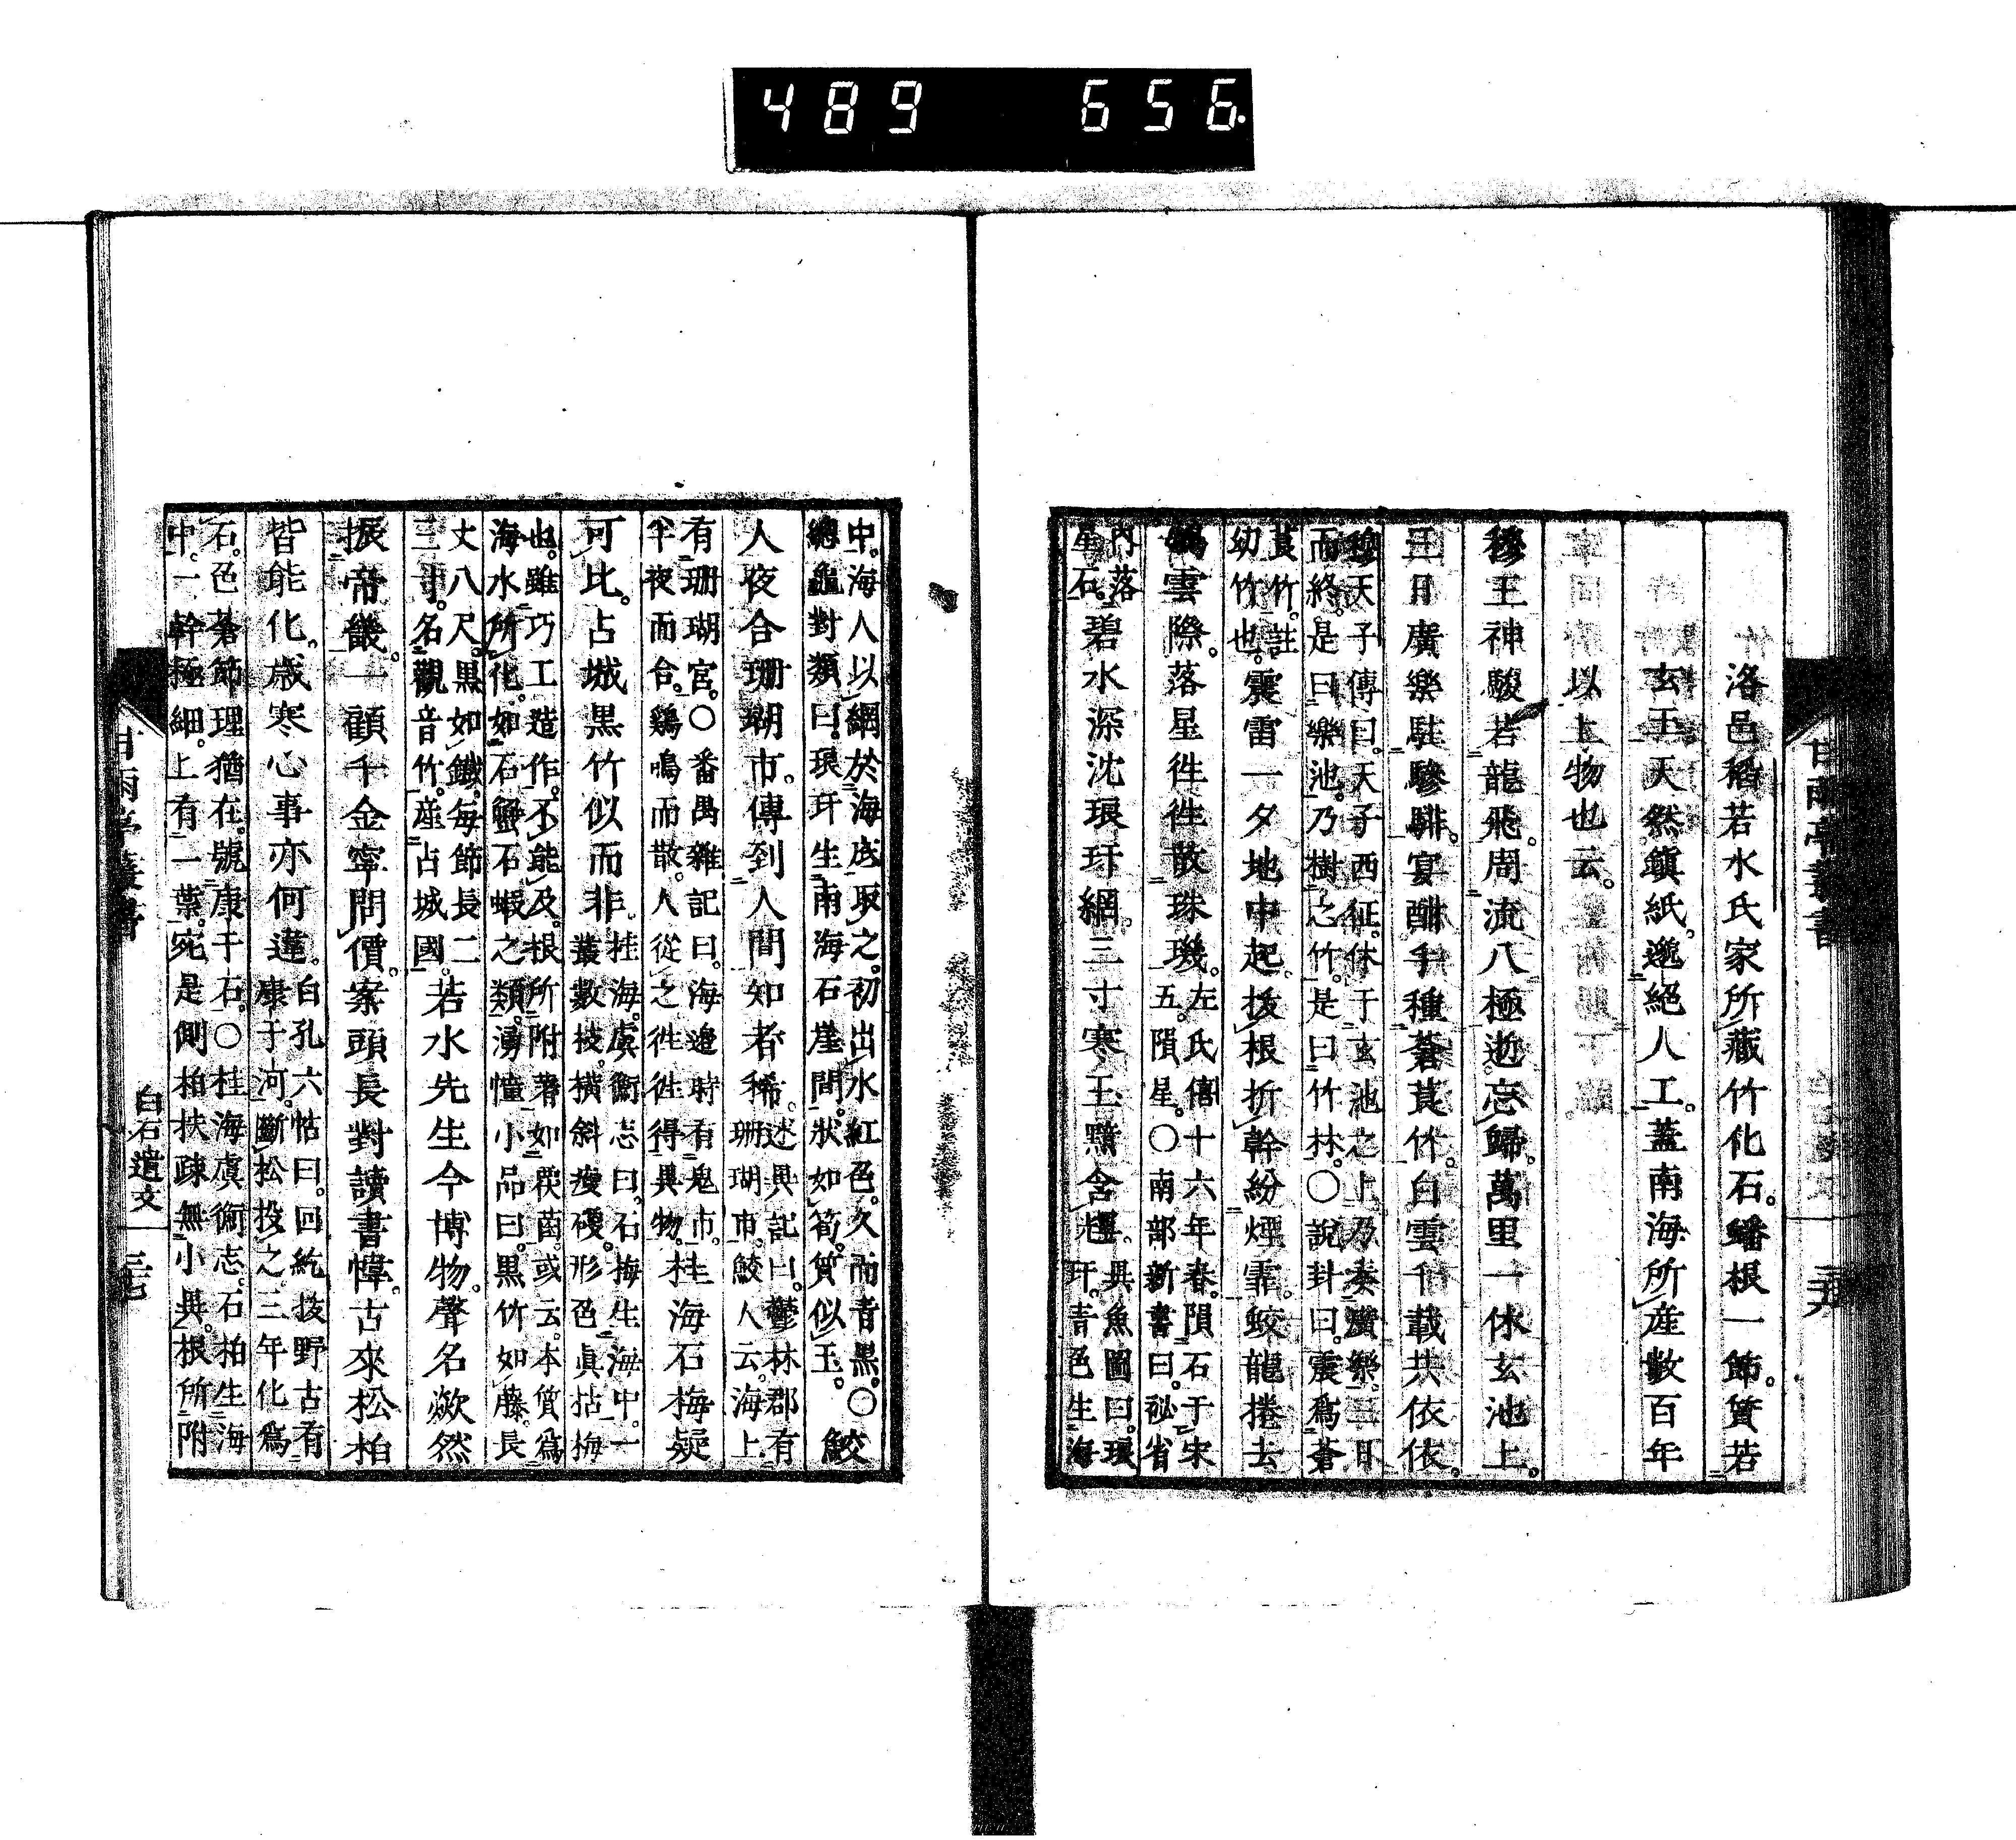 489 656
洛邑稻若水氏家所藏竹化石。蟠根一節。質若
玄玉天然鎮紙。邈絕人工。蓋南海所産數百年
以上物也云。
穆王神駿若龍飛。周流八極逝忘歸。萬里一休玄池上。
三日廣樂駐驂騑。宴酣手種蒼筤竹。白雲千載共依依。
穆天子傳曰。天子西征。休于玄池之上。乃奏廣樂。三日
而終。是曰樂池。乃樹之竹。是曰竹林。○說卦曰。震爲蒼
筤竹。註。
幼竹也。震雷一夕地中起。拔根折幹紛煙霏。蛟龍捲去
雲際。落星徃徃散珠璣。左氏傳十六年春。隕石于宋
五。隕星。○南部新書曰。祕省
內落
星石。碧水深沈琅玕網。三寸寒玉黯含煙。異魚圖曰。琅
玕。青色生海
中。海人以網於海底取之。初出水紅色。久而青黑。○
總龜對類曰。琅玕生南海石崖間。狀如筍。質似玉。鮫
人夜合珊瑚市。傳到人間如者稀。述異記曰。鬱林郡有
珊瑚市。鮫人云。海上
有珊瑚宮。○番禺雜記曰。海邉時有鬼市。
半夜而合。鷄鳴而散。人從之徃徃得異物。桂海石梅疑
可比。占城黑竹似而非。桂海虞衡志曰。石梅生海中。一
叢數枝。橫斜瘦硬。形色眞枯梅
也。雖巧工造作。不能及。根所附著如覆菌。或云。本質爲
海水所化。如石蟹石蝦之類。湧幢小品曰。黑竹如藤。長
丈八尺。黑如鐵。每節長二
三寸。名觀音竹。産占城國。若水先生今博物。聲名歘然
振帝畿。一顧千金寧問價。案頭長對讀書幃。古來松柏
皆能化。歲寒心事亦何違。白孔六帖曰。回紇拔野古有
康干河。斷松投之。三年化爲
石。色蒼節理猶在。號康干石。○桂海虞衡志。石柏生海
中。一幹極細。上有一葉。宛是側柏扶疎無小異。根所附
白石遺文